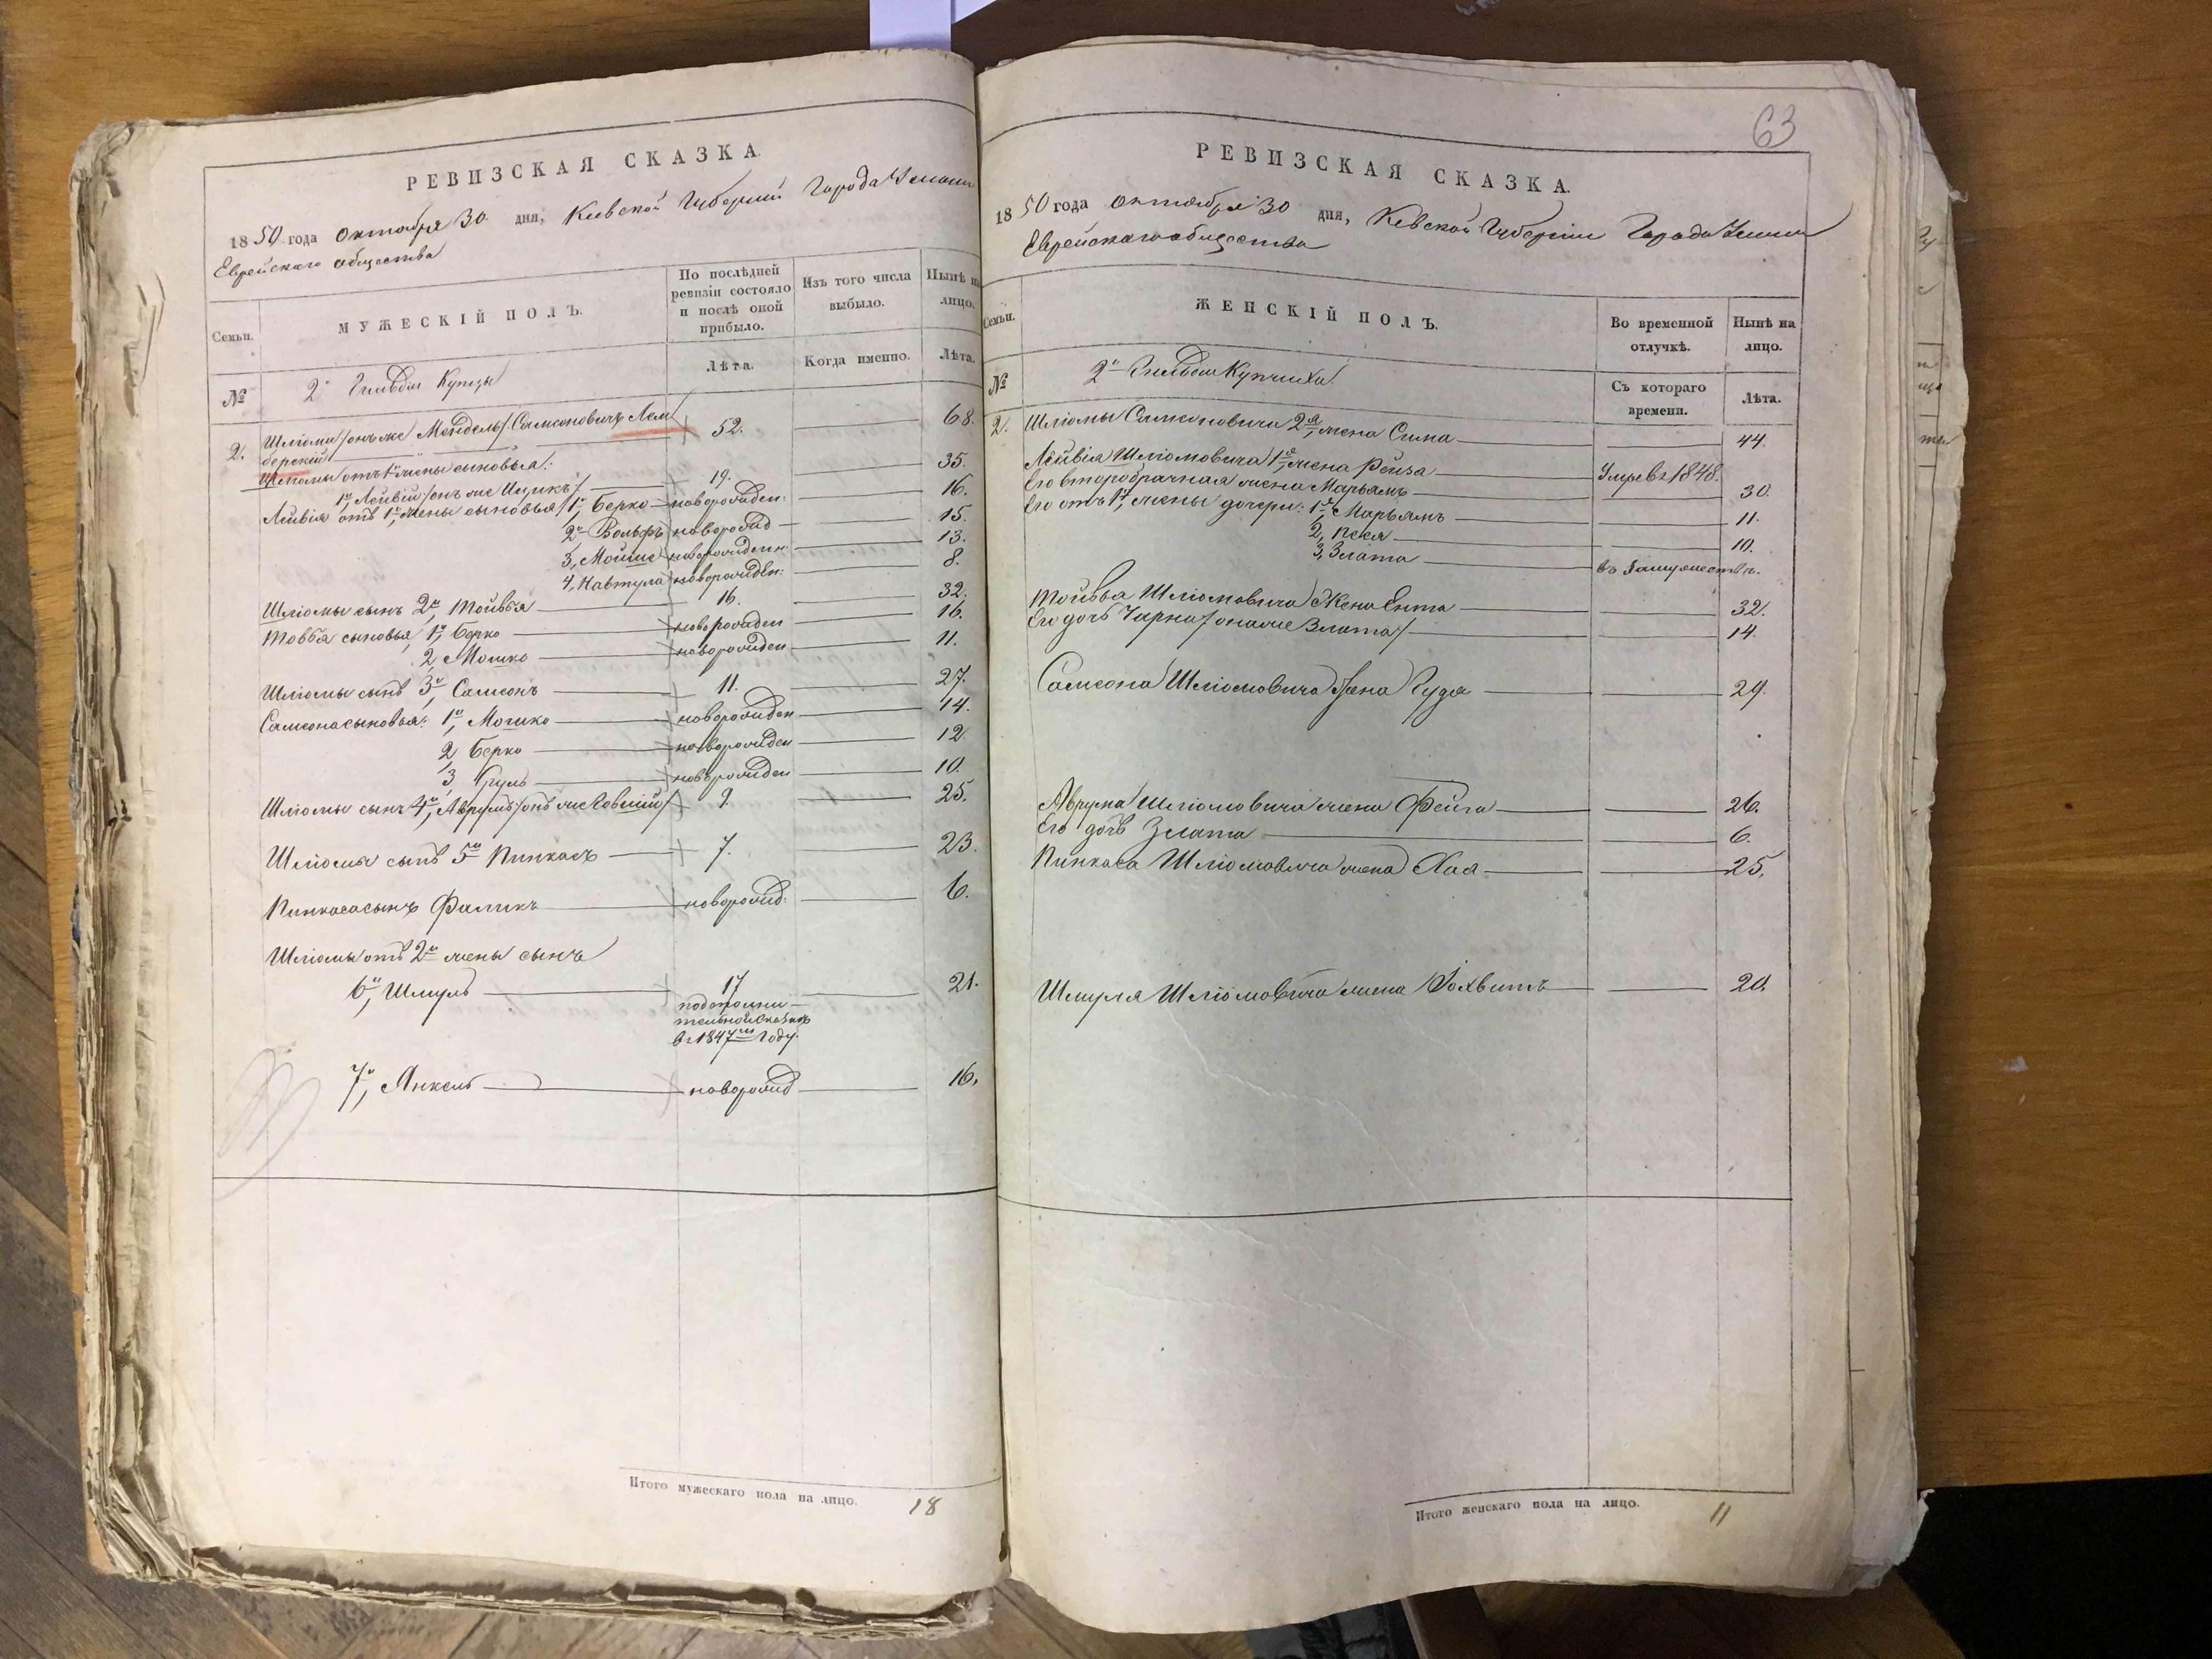 РЕВИЗСКАЯ СКАЗКА.
1850 года Октября 30 дня, Киевской Губернии Города Умани
Еврейскаго общества
Семьи.
МУЖЕСКІЙ ПОЛЪ.
По послѣдней ревизіи состояло и послѣ оной прибыло.
Изъ того числа выбыло.
Нынѣ на лицо.
№
2й Гильдіи Купцы
Лѣта.
Когда именно.
Лѣта.
2. Шліома /онъ же Мендель/ Самсоновичъ Лем 52. 68.
берскій
Шліомы отъ 1й жены сыновья:
1й Лейвій /онъ же Ицикъ/ 19. 35.
Лейвія отъ 1й жены сыновья 1й Берко новорожден: 16.
2й Вольфъ новорожд 15.
3, Мойше новорожден: 13.
4, Навтула новорожден: 8.
Шліомы сынъ 2й, Тойвья 16. 32.
Товья сыновья 1й, Берко новорожден 16.
2, Мошко новорожден 11.
Шліомы сынъ 3й, Самсонъ 11. 27.
Самсона сыновья: 1й, Мошко новорожден 14.
2, Берко новорожден 12.
3, Сруль новорожден 10.
Шліомы сынъ 4й, Аврумъ /онъ же / 9. 25.
Шліомы сынъ 5й Пинкасъ 7. 23.
Пинкаса сынъ Фаликъ новорожд: 6.
Шліомы отъ 2й жены сынъ
6й, Шмуль 17 21.
по дополни-
тельной сказкѣ
въ 1847м году.
7й, Янкель новорожд 16.
Итого мужескаго пола на лицо. 18
63
РЕВИЗСКАЯ СКАЗКА.
1850 года октября 30 дня, Кевской Губерніи Города Умани
Еврейскаго общества
Семьи.
ЖЕНСКІЙ ПОЛЪ.
Во временной отлучкѣ.
Нынѣ на лицо.
№
2й Гильдіи Купчихи
Съ котораго времени.
Лѣта.
2. Шліомы Самсоновича 2я, жена Сима 44.
Лейвія Шліомовича 1я, жена Рейза Умре въ 1848.
Его второбрачная жена Марьямъ 30.
Его отъ 1й, жены дочери: 1я Марьямъ 11.
2, Песя 10.
3, Злата въ замужествѣ.
Тойвья Шліомовича Жена Ента 32.
Его дочь Чарна /она же Злата/ 14.
Самсона Шліомовича Жена Гуда 29.
Аврума Шліомовича жена Фейга 26.
Его дочь Злата 6.
Пинкаса Шліомовича жена Хая 25.
Шмуля Шліомовича жена 20.
Итого женскаго пола на лицо. 11